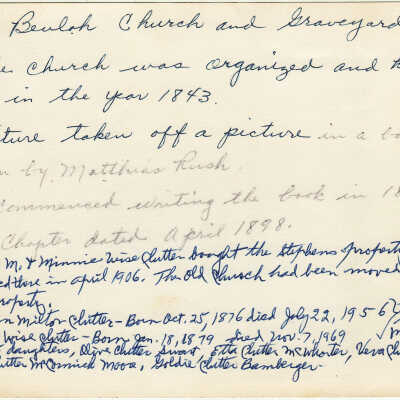 Beulah Church and Graveyard
e Church was organized and
in the year 1843.
ture taken off a picture in a bo
n by Matthias Rush.
Commenced writing the book in 18
Chapter dated April 1898.
M. & Minnie Wise Clutter bought the Stephens property
ed there in April 1906. The Old Church had been moved
property.
n Milton Clutter - Born Oct. 25, 1876 died July 22, 1956
Wise Clutter - Born Jan. 18, 1879 died Nov. 7, 1969
daughters, Olive Clutter Swart, Etta Clutter McWhorter, Vera Clu
utter McCormick Moore, Goldie Clutter Bamberger.